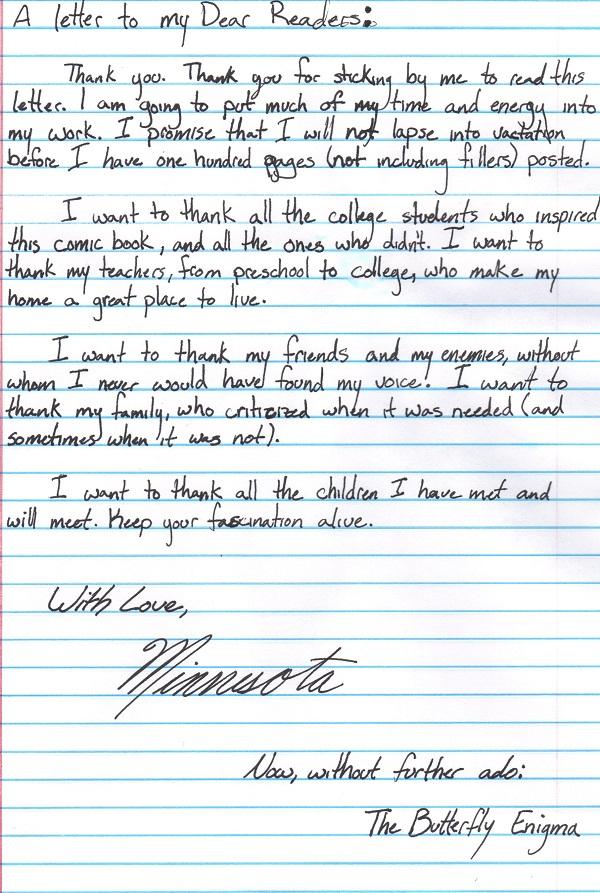 A letter to my Dear Readers:
Thank you. Thank you for sticking by me to read this
letter. I am going to put much of my time and energy into
my work. I promise that I will not lapse into vactation
before I have one hundred pages (not including fillers) posted.
I want to thank all the college students who inspired
this comic book, and all the ones who didn't. I want to
thank my teachers, from preschool to college, who make my
home a great place to live.
I want to thank my friends and my enemies, without
whom I never would have found my voice. I want to
thank my family, who criticized when it was needed (and
sometimes when it was not).
I want to thank all the children I have met and
will meet. Keep your fascination alive.
With Love,
Minnesota
Now, without further ado:
The Butterfly Enigma